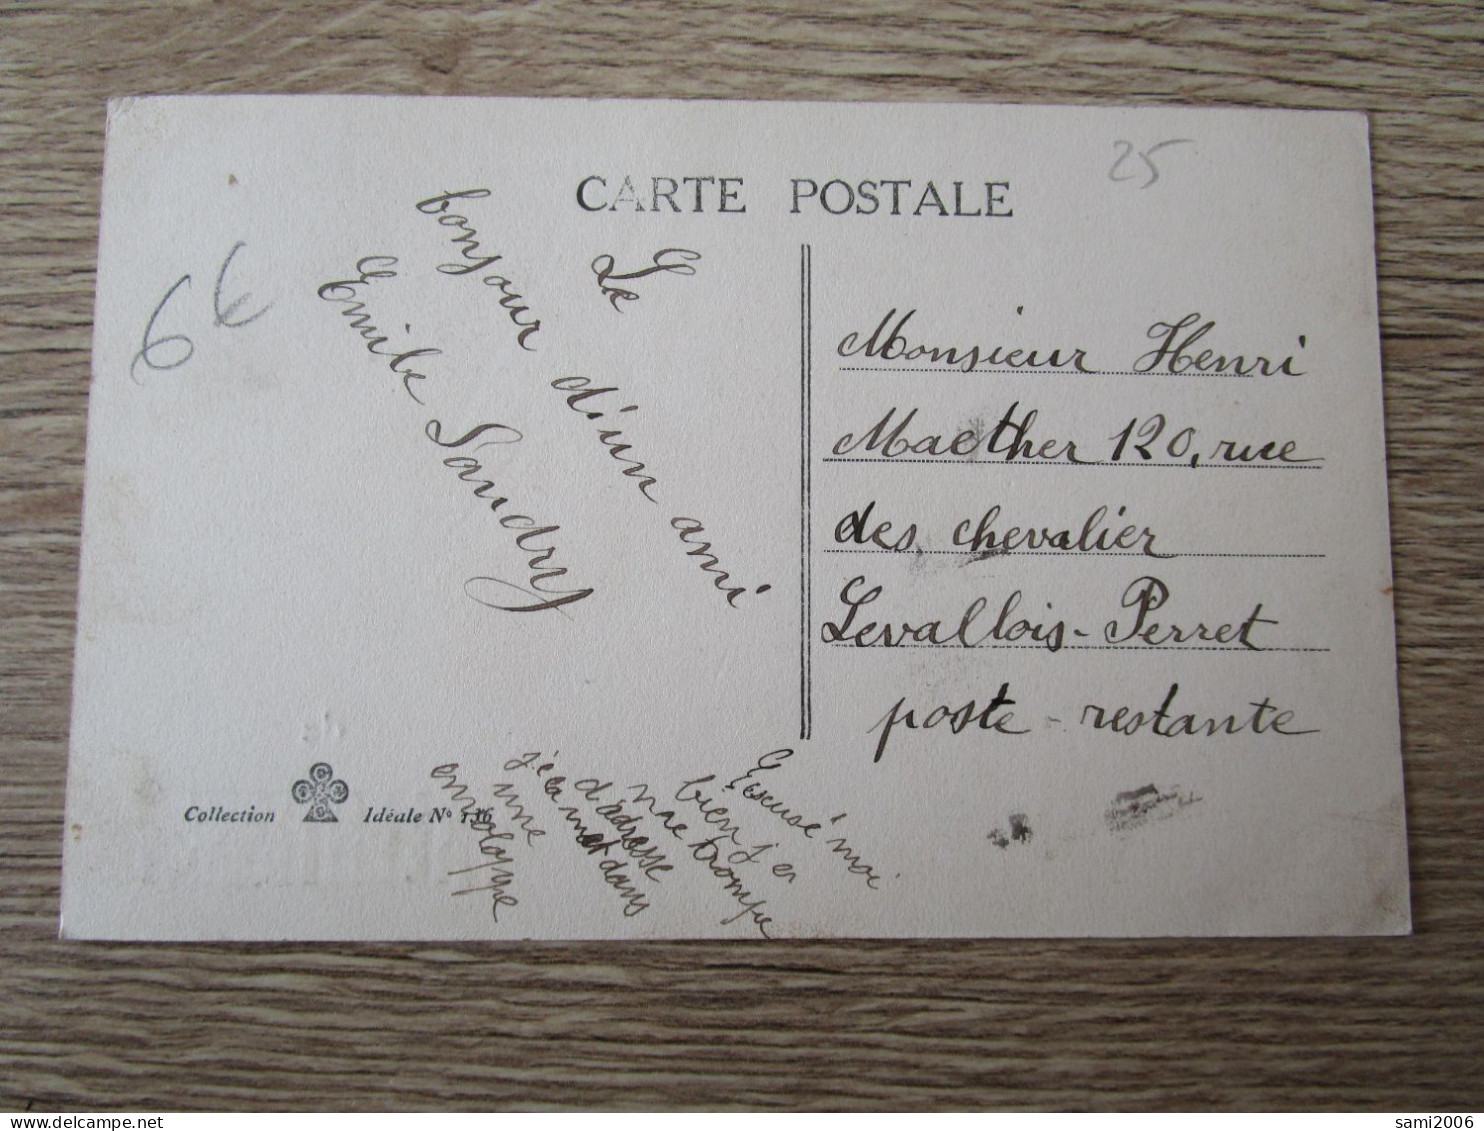 CARTE POSTALE
25
6 €
Le
bonjour d'un ami
Emile Landry
Monsieur Henri
Maether 120, rue
des chevalier
Levallois-Perret
poste-restante
Excusé moi
bien j'ai
me trompe
d'adresse
j'ecamet dans
une
envoloppe
Collection Idéale No 136
sami2006